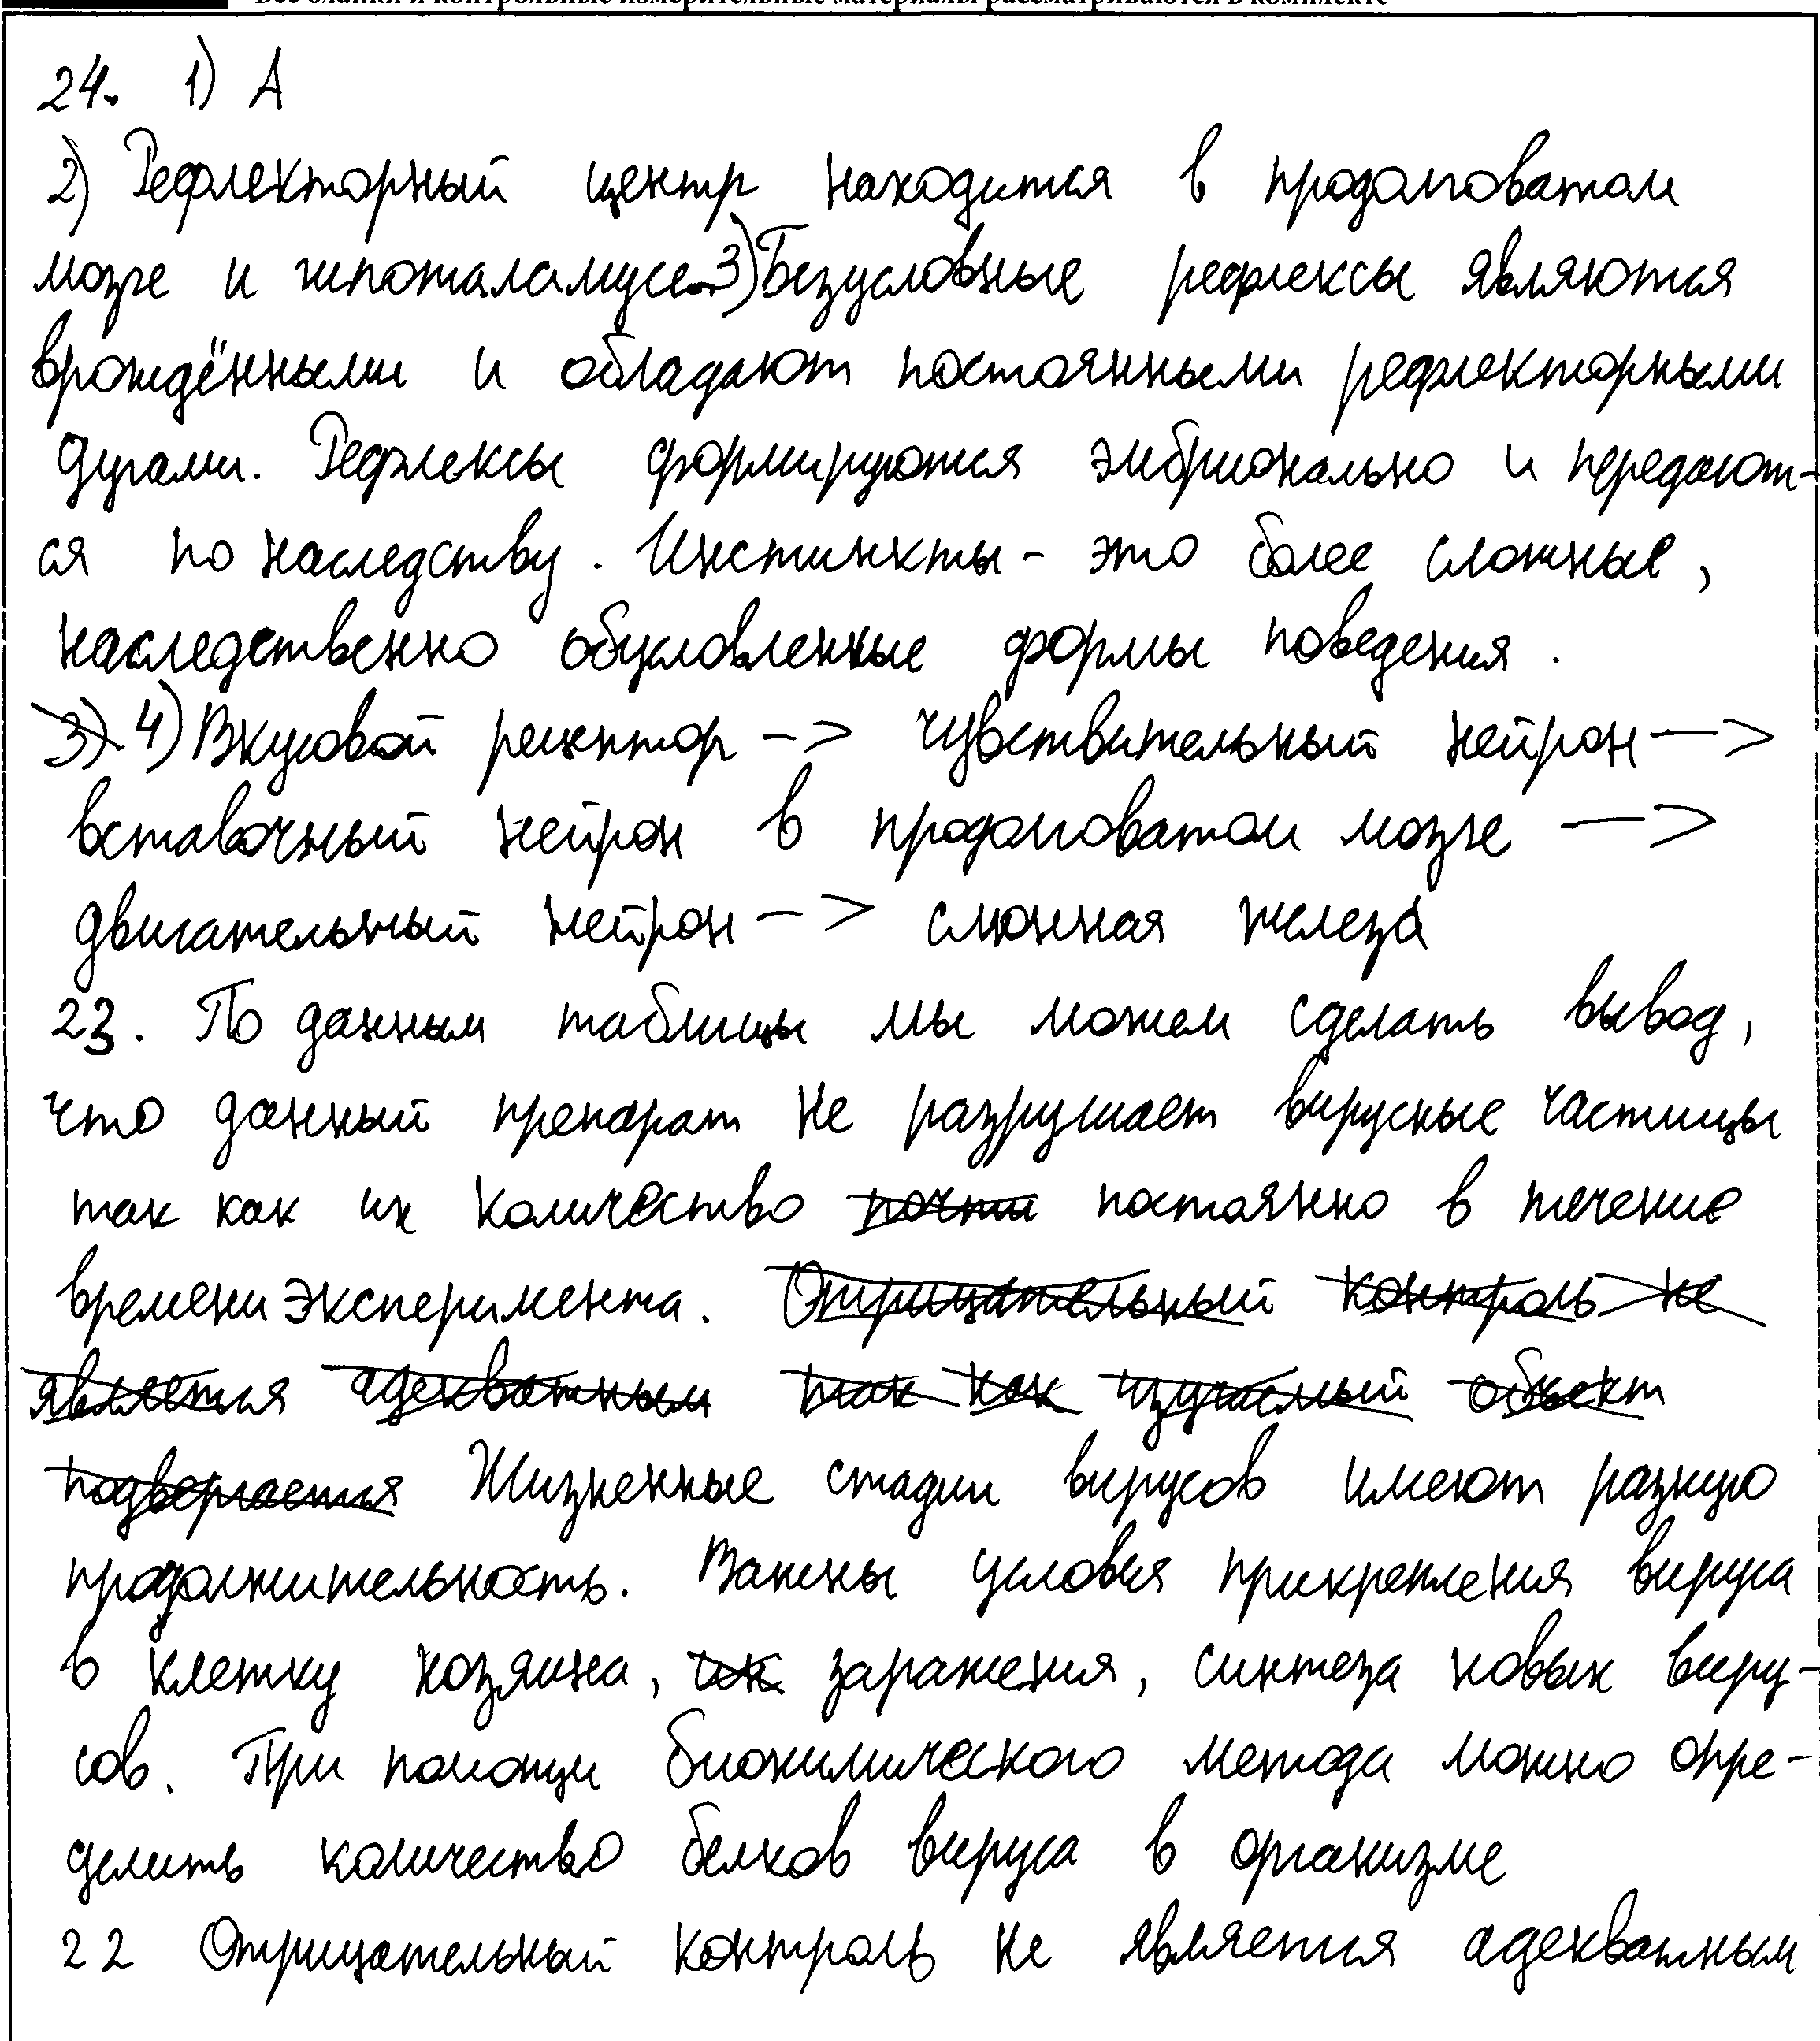 Все бланки и контрольные измерительные материалы рассматриваются в комплекте
24. 1) А
2) Рефлекторный центр находится в продолговатом
мозге и гипоталамусе. 3) Безусловные рефлексы являются
врождёнными и обладают постоянными рефлекторными
дугами. Рефлексы формируются эмбрионально и передают-
ся по наследству. Инстинкты - это более сложные,
наследственно обусловленные формы поведения.
3). 4) Вкусовой рецептор -> чувствительный нейрон ->
вставочный нейрон в продолговатом мозге ->
двигательный нейрон -> слюнная железа
23. По данным таблицы мы можем сделать вывод,
что данный препарат не разрушает вирусные частицы
так как их количество почти постоянно в течение
времени эксперимента. Отрицательный контроль не
является адекватным так как изучаемый объект
подвергается Жизненные стадии вирусов имеют разную
продолжительность. Важны условия прикрепления вируса
в клетку хозяина, их заражения, синтеза новых виру-
сов. При помощи биохимического метода можно опре-
делить количество белков вируса в организме
22 Отрицательный контроль не является адекватным